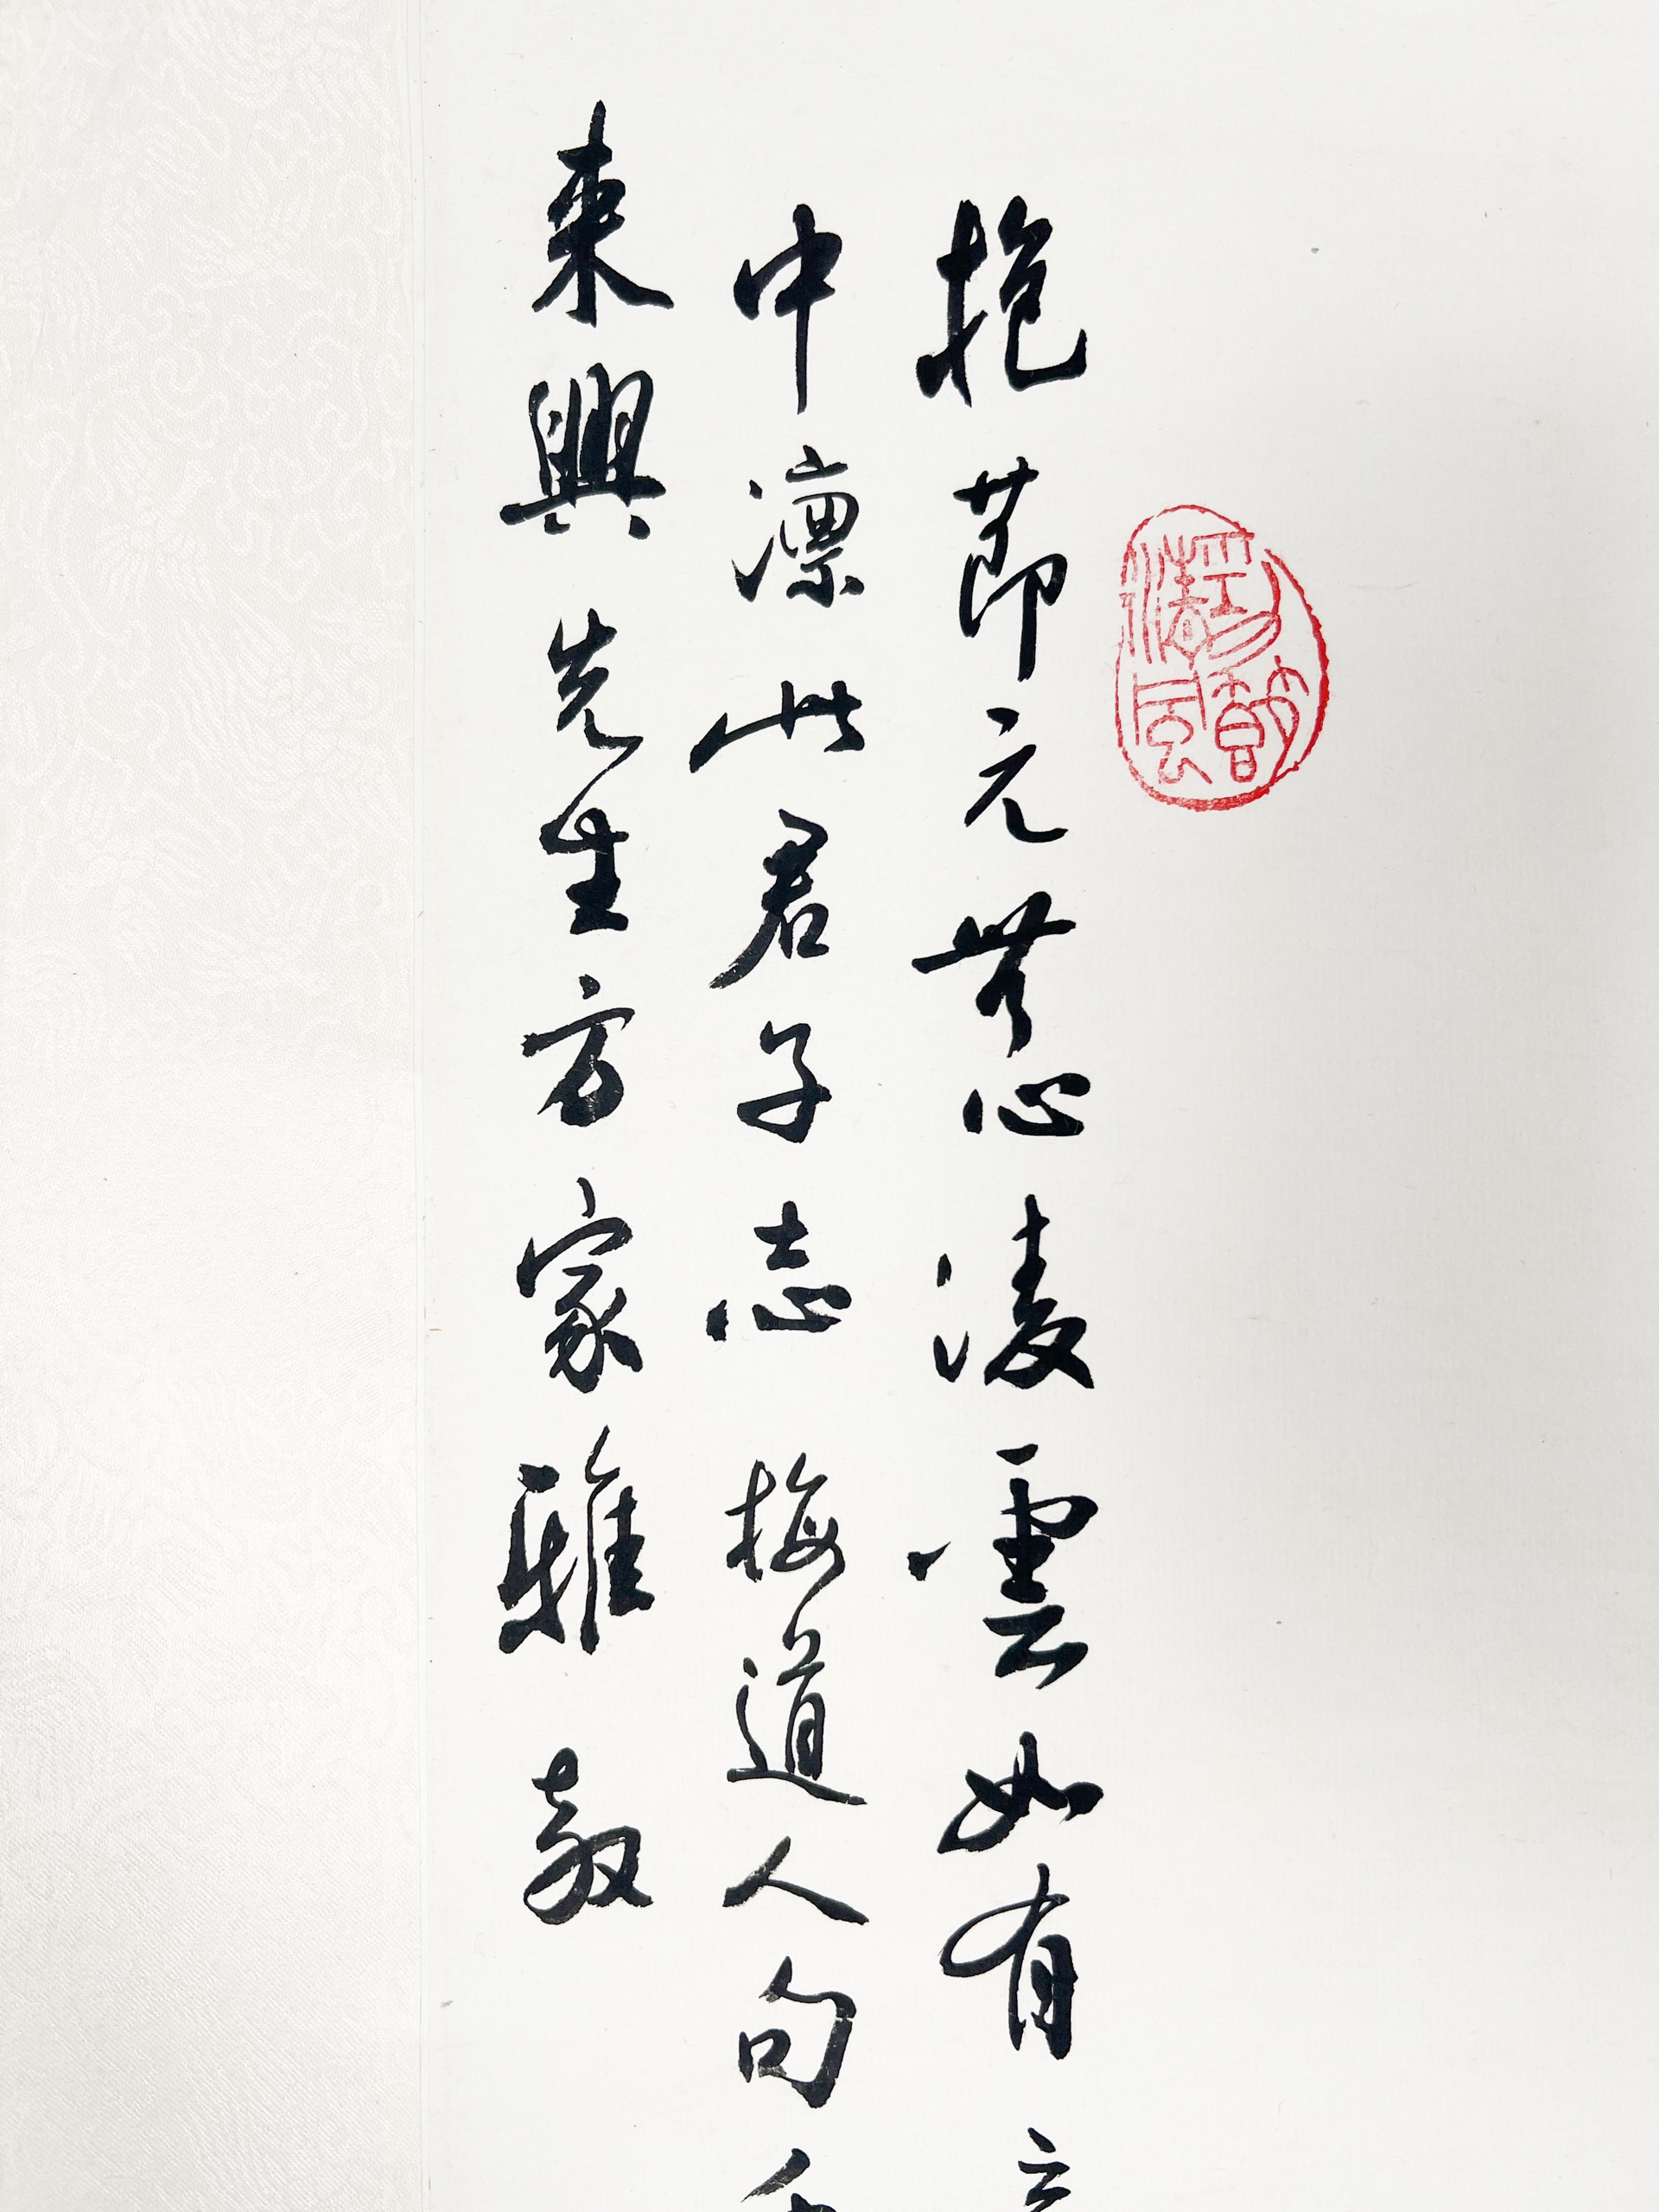 勁節清風
抱節元無心凌雲如有
中凜此君子志 梅道人句
來興先生方家雅教